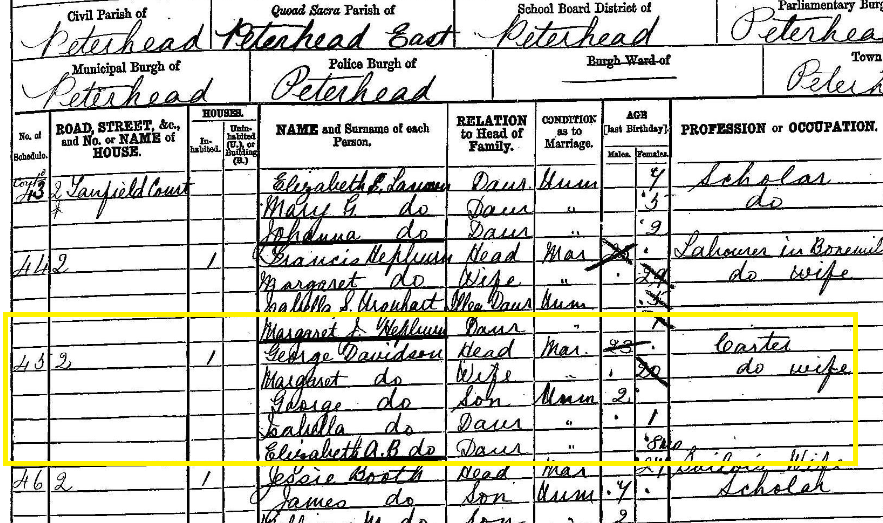 Civil Parish of Quoad Sacra Parish of School Board District of Parliamentary Burg
Peterhead Peterhead East Peterhead Peterhea
Municipal Burgh of Police Burgh of Burgh Ward of Town
Peterhead Peterhead Peter
No. of Schedule. ROAD, STREET, &c., and No. or NAME of HOUSE. HOUSES. Inhabited. Uninhabited (U.), or Building (B.) NAME and Surname of each Person. RELATION to Head of Family. CONDITION as to Marriage. AGE [last Birthday]. Males. Females. PROFESSION or OCCUPATION.
43 2 Court Elizabeth Daur Unm 7 Scholar
Mary G. do Daur " 5 do
Johanna do Daur " 2
44 2 1 Francis Hepburn Head Mar Labourer in
Margaret do Wife " 29 do wife
Isabella S. Urquhart Daur Unm
Margaret S. Hepburn Daur "
45 2 1 George Davidson Head Mar. 23 Carter
Margaret do Wife " 20 do wife
George do Son Unm 2
Isabella do Daur " 1
Elizabeth A.B do Daur " 8mo
46 2 1 Jessie Booth Head Mar 27 Wife
James do Son Unm 4 Scholar
do Son " 2